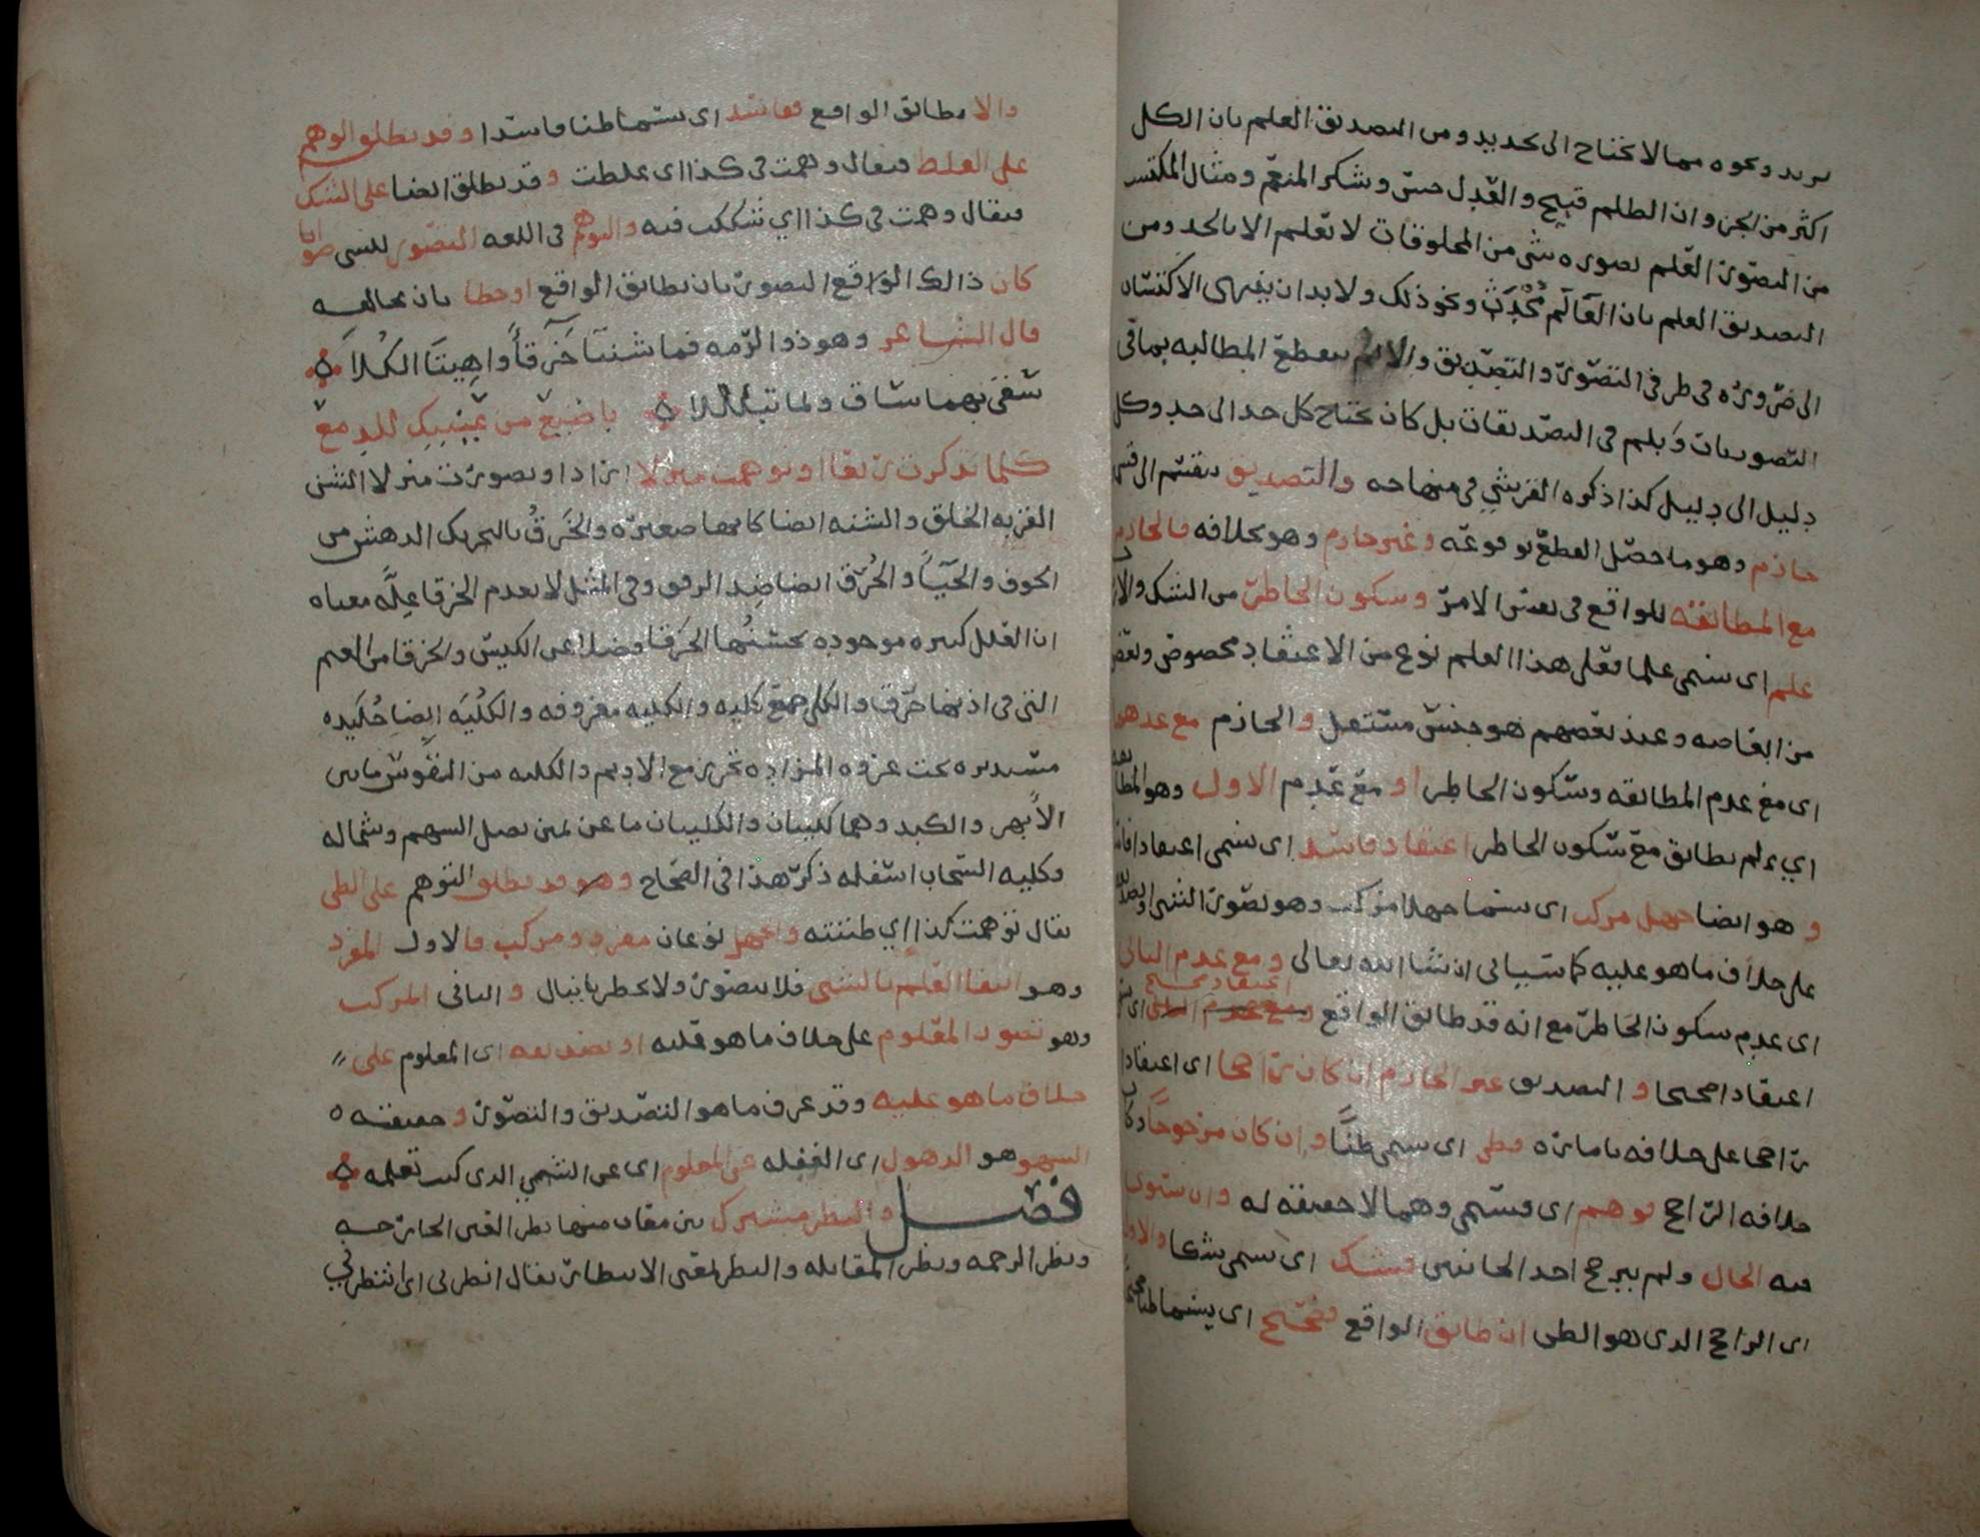 يريد ونحوه مما لا يحتاج الى تحديد ومن التصديق العلم بان الكل
اكثر من الجز وان الظلم قبيح والعدل حسن وشكر المنعم ومثال المكتسب
من التصور العلم بصوره شي من المخلوقات لا تعلم الا بالحد ومن
التصديق العلم بان العَالَم مُحْدَث ونحو ذلك ولا بد ان ينتهى الاكتساب
الى ضروره في طرفي التصور والتصديق والا لم تنقطع المطالبه بما في
التصورات وبلم في التصديقات بل كان يحتاج كل حد الى حد وكل
دليل الى دليل كذا ذكره القرشي في منهاجه والتصديق ينقسم الى
جازم وهو ما حصل القطع بوقوعه وغير جازم وهو بخلافه فالجازم
مع المطابقه للواقع في نفس الامر وسكون الخاطر من الشك
علم اى يسمى علما فعلى هذا العلم نوع من الاعتقاد مخصوص
وعند بعضهم هو جنس مستقل والجازم مع عدمهما
اى مع عدم المطابقه وسكون الخاطر او مع عدم الاول وهو المطابقه
اي لم يطابق مع سكون الخاطر اعتقاد فاسد اى يسمى اعتقادا
و هو ايضا جهل مركب اى يسما جهلا مركب وهو تصور الشى
على خلاف ما هو عليه كما سياتي ان شا الله تعالى ومع عدم الثاني
اى عدم سكون الخاطر مع انه قد طابق الواقع اعتقاد صحيح
اعتقادا صحيحا والتصديق غير الجازم ان كان راجحا اى اعتقادا
راجحا على خلافه باماره فظن اى يسمى ظنًّا وان كان مرجوحًا
خلافه الراجح فوهم اى فيسمى وهما لا حقيقه له وان ستوى
فيه الحال ولم يترجح احد الجانبين فشك اى يسمى شكا والاول
اى الراجح الذى هو الظن ان طابق الواقع فصحيح اى يسما ظنا صحيحا
والا يطابق الواقع ففاسد اى يسما ظنا فاسدا وقد يطلق الوهم
على الغلط فيقال وهمت في كذا اى غلطت وقد يطلق ايضا على الشك
فيقال وهمت في كذا اي شككت فيه والتوهم في اللغه التصور للشى صوابا
كان ذالك الواقع التصور بان يطابق الواقع او خطا بان يخالفه
قال الشاعر وهو ذو الرمه فما شنتا خَرقآ واهيتا الكُلا
سقى بهما ساق ولما تبللا باضيع من عينيك للدمع
كلما تذكرت ربعا او توهمت منزلا اراد او تصورت منزلا الشن
القربه الخلق والشنه ايضا كانها صغيره والخَرَقُ بالتحريك الدهش من
الخوف والحَيَا والخُرق ايضا ضد الرفق وفي المثل لا تعدم الخرقا عِلَّه معناه
ان العلل كثيره موجوده تحسنها الخرقا فضلا عن الكيس والخرقا من الغنم
التى في اذنها خرق والكلى جمع كليه والكليه معروفه والكُليَه ايضا جُليده
مستديره تحت عروه المزاده تخرز مع الاديم والكليه من القوس مابين
الأبهر والكبد وهما كليتان والكليتان ما عن يمين نصل السهم وشماله
وكليه السحاب اسفله ذكر هذا في الصحاح وقد يطلق التوهم على الظن
يقال توهمت كذا اي ظننته والجهل نوعان مفرد ومركب فالاول المفرد
وهو انتفا العلم بالشى فلا يتصور ولا يخطر بالبال والثانى المركب
وهو تصور المعلوم على خلاف ما هو عليه او تصديقه اى المعلوم على
خلاف ما هو عليه وقد عرف ما هو التصديق والتصور وحقيقته
السهو هو الذهول اى الغفله عن المعلوم اى عن الشى الذى كنت تعلمه
فصل والنظر مشترك بين معان منها نظر العين الجارحه
ونظر الرحمه ونظر المقابله والنظر بمعنى الانتظار يقال انظرنى اى انتظرني